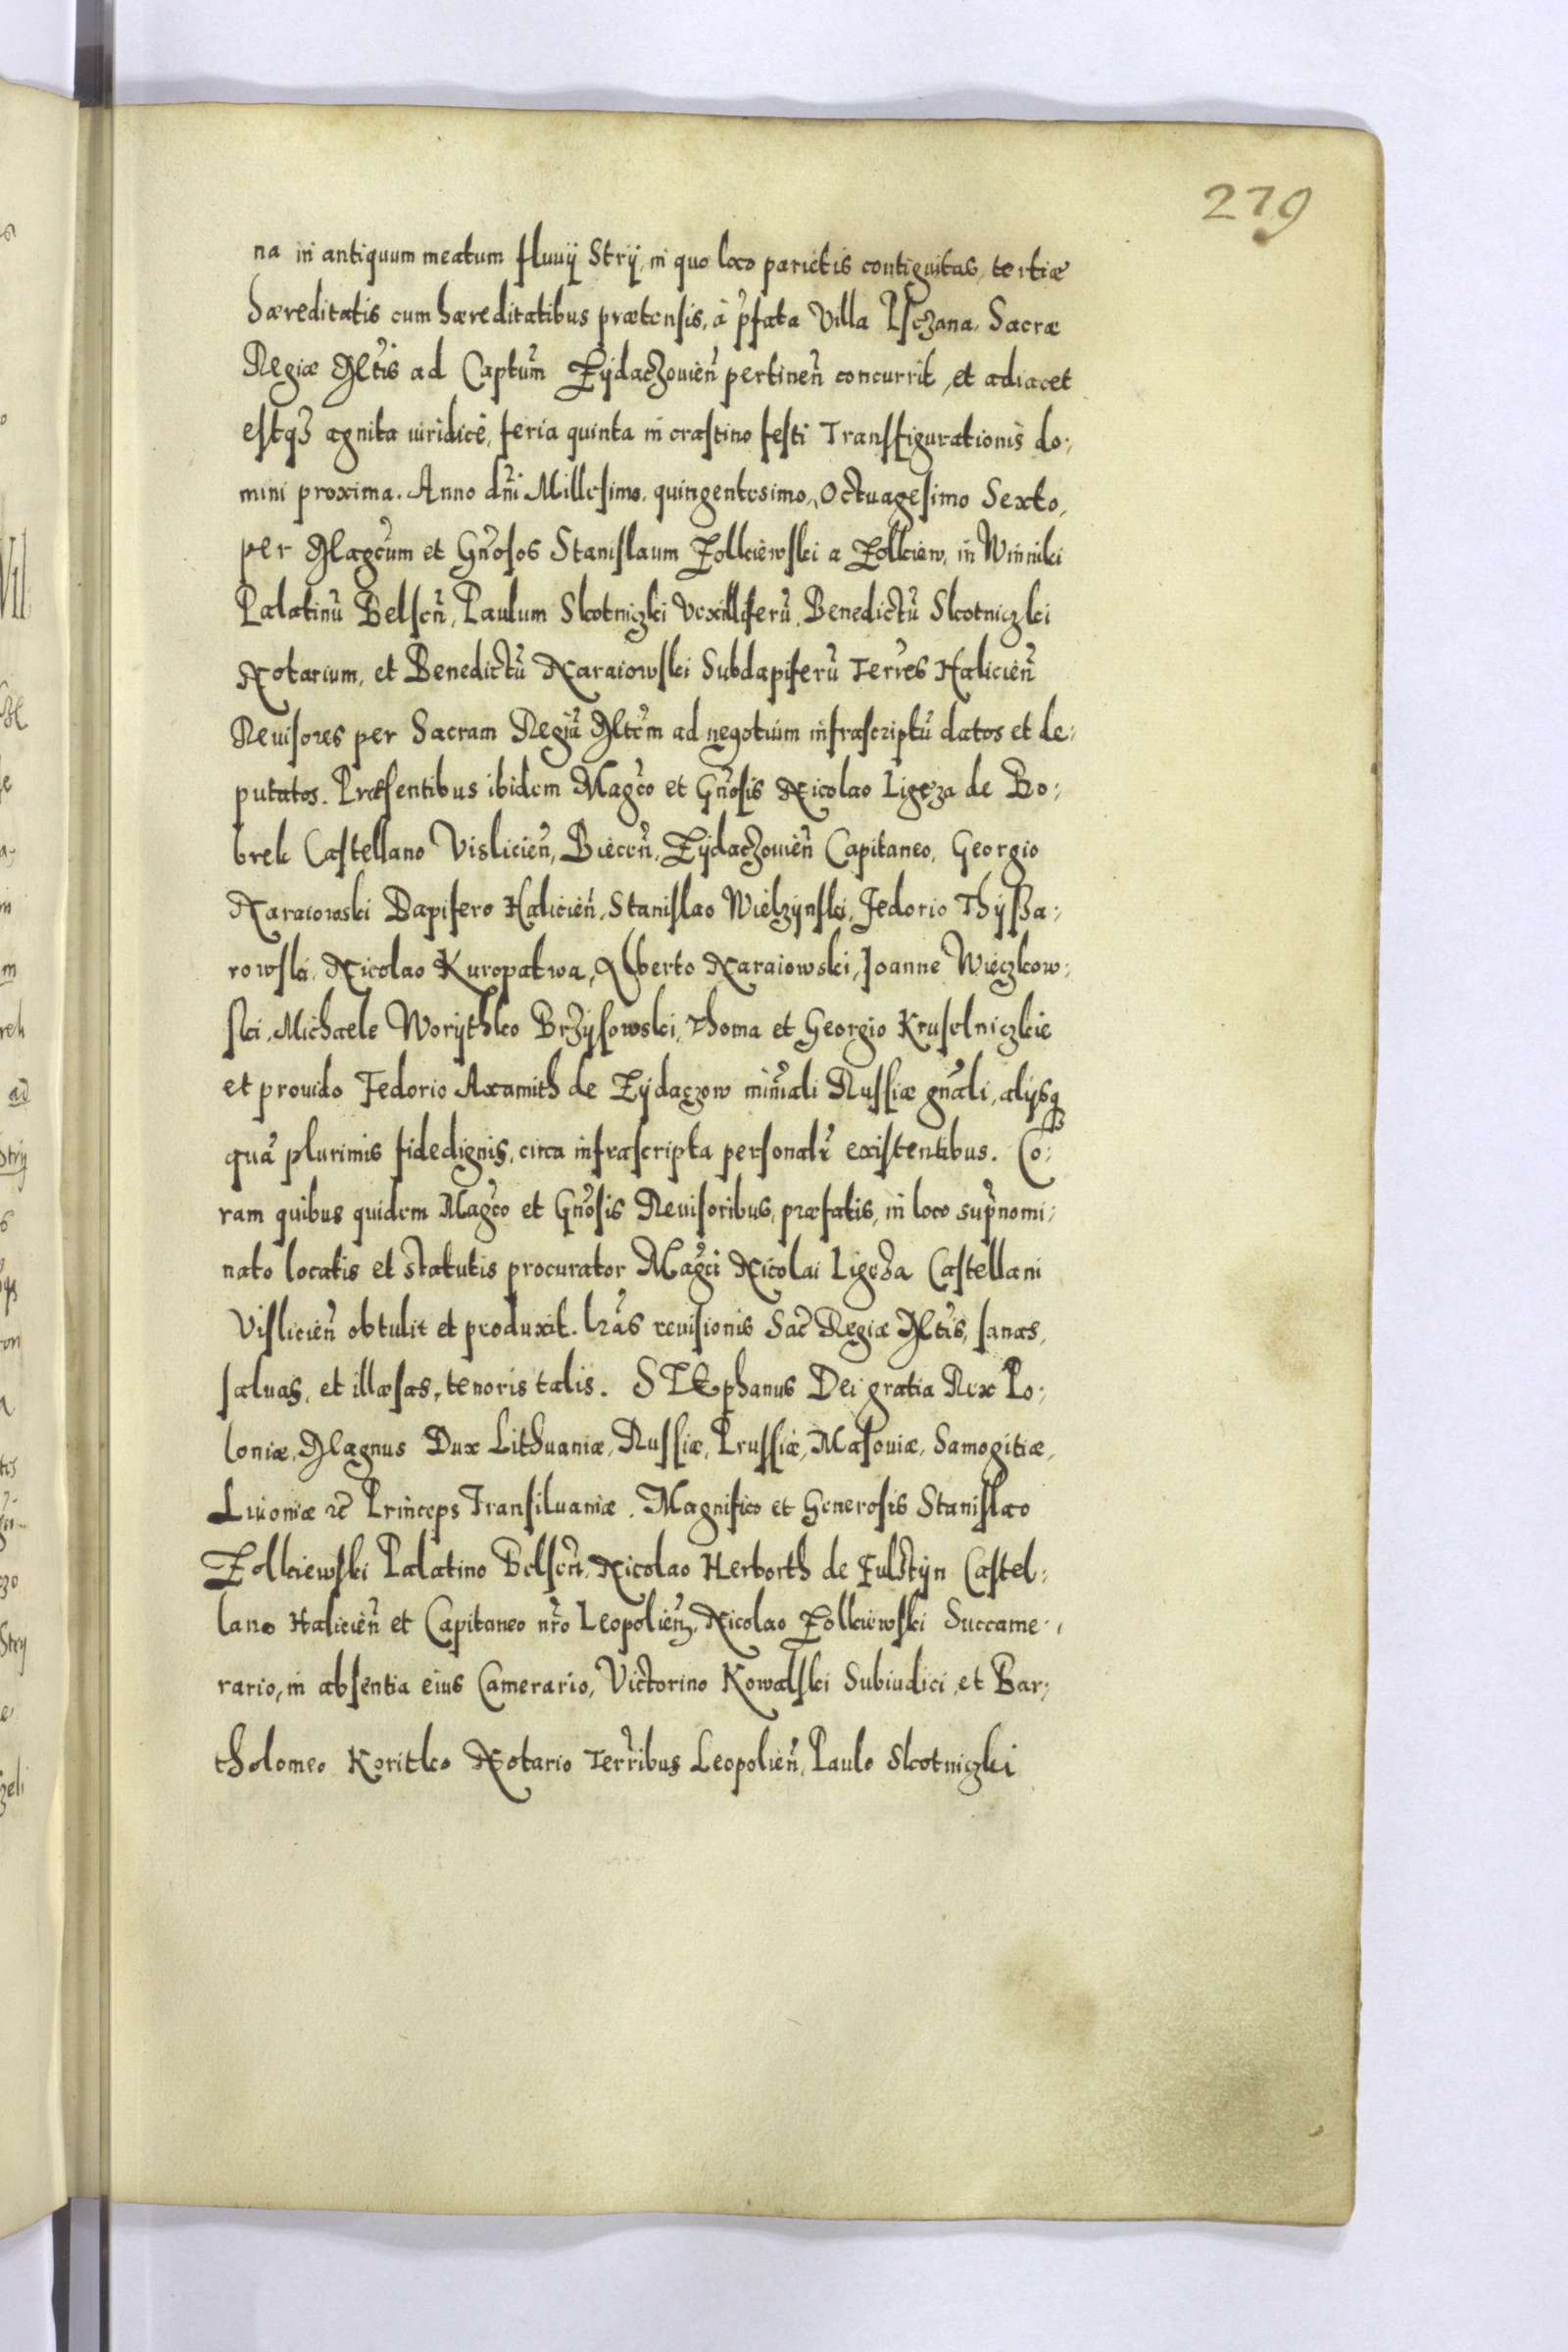 279
na in antiquum meatum fluuij Strij, in quo loco parietis contiguitas, tertiæ
hæreditatis cum hæreditatibus prætensis, à p̃fata Villa Psczana, Sacræ
Regiæ Mẽtis ad Captum̃ Zÿdaczouien̄ pertinen̄ concurrit, et adiacet
estq3 agnita iuridicè, feria quinta in crastino festi Transfigurationis do:
mini proxima. Anno dn̄i Millesimo, quingentesimo, Octuagesimo Sexto,
per Magc̃um et Gn̄osos Stanislaum Zolkiewski a Zolkiew, in Winniki
Palatinū Belsen̄, Paulum Skotniczki Vexilliferū, Benedictū Skotniczki
Notarium, et Benedictū Naraiowski Subdapiferū Terr̃es Halicien̄
Reuisores per Sacram Regiā Mtẽm ad negotium infrascriptū datos et de:
putatos. Præsentibus ibidem Magc̃o et Gn̄osis Nicolao Ligęza de Bo:
brek Castellano Vislicien̄, Biecen̄, Zÿdaczouien̄ Capitaneo, Georgio
Naraiowski Dapifero Halicien̄, Stanislao Wielzÿnski, Fedorio Thÿssa:
rowski, Nicolao Kuropatwa, Alberto Naraiowski, Joanne Wieczkow:
ski, Michaele Worÿthko Brzÿsowski, Thoma et Georgio Kruselniczkie
et prouido Fedorio Axamith de Zÿdaczow min̄iali Russiæ gn̄ali, alijsq3
quā plurimis fidedignis, circa infrascripta personalr̃ existentibus. Co:
ram quibus quidem Magc̃o et Gn̄osis Reuisoribus, præfatis, in loco sup̃nomi:
nato locatis et statutis procurator Magc̃i Nicolai Ligęza Castellani
Vislicien̄ obtulit et produxit. lr̃as reuisionis Sac̃ Regiæ Mtĩs, sanas,
saluas, et illæsas, tenoris talis. STEphanus Dei gratia Rex Po:
loniæ, Magnus Dux Lithuaniæ, Russiæ, Prussiæ, Masouiæ, Samogitiæ,
Liuoniæ ꝛc̃ Princeps Transiluaniæ. Magnifico et Generosis Stanislao
Zolkiewski Palatino Belsen̄, Nicolao Herborth de Fulstÿn Castel:
lano Halicien̄ et Capitaneo nr̃o Leopolien̄, Nicolao Zolkiewski Succame:
rario, in absentia eius Camerario, Victorino Kowalski Subiudici, et Bar:
tholomeo Koritko Notario Terr̃ibus Leopolien̄, Paulo Skotniczki